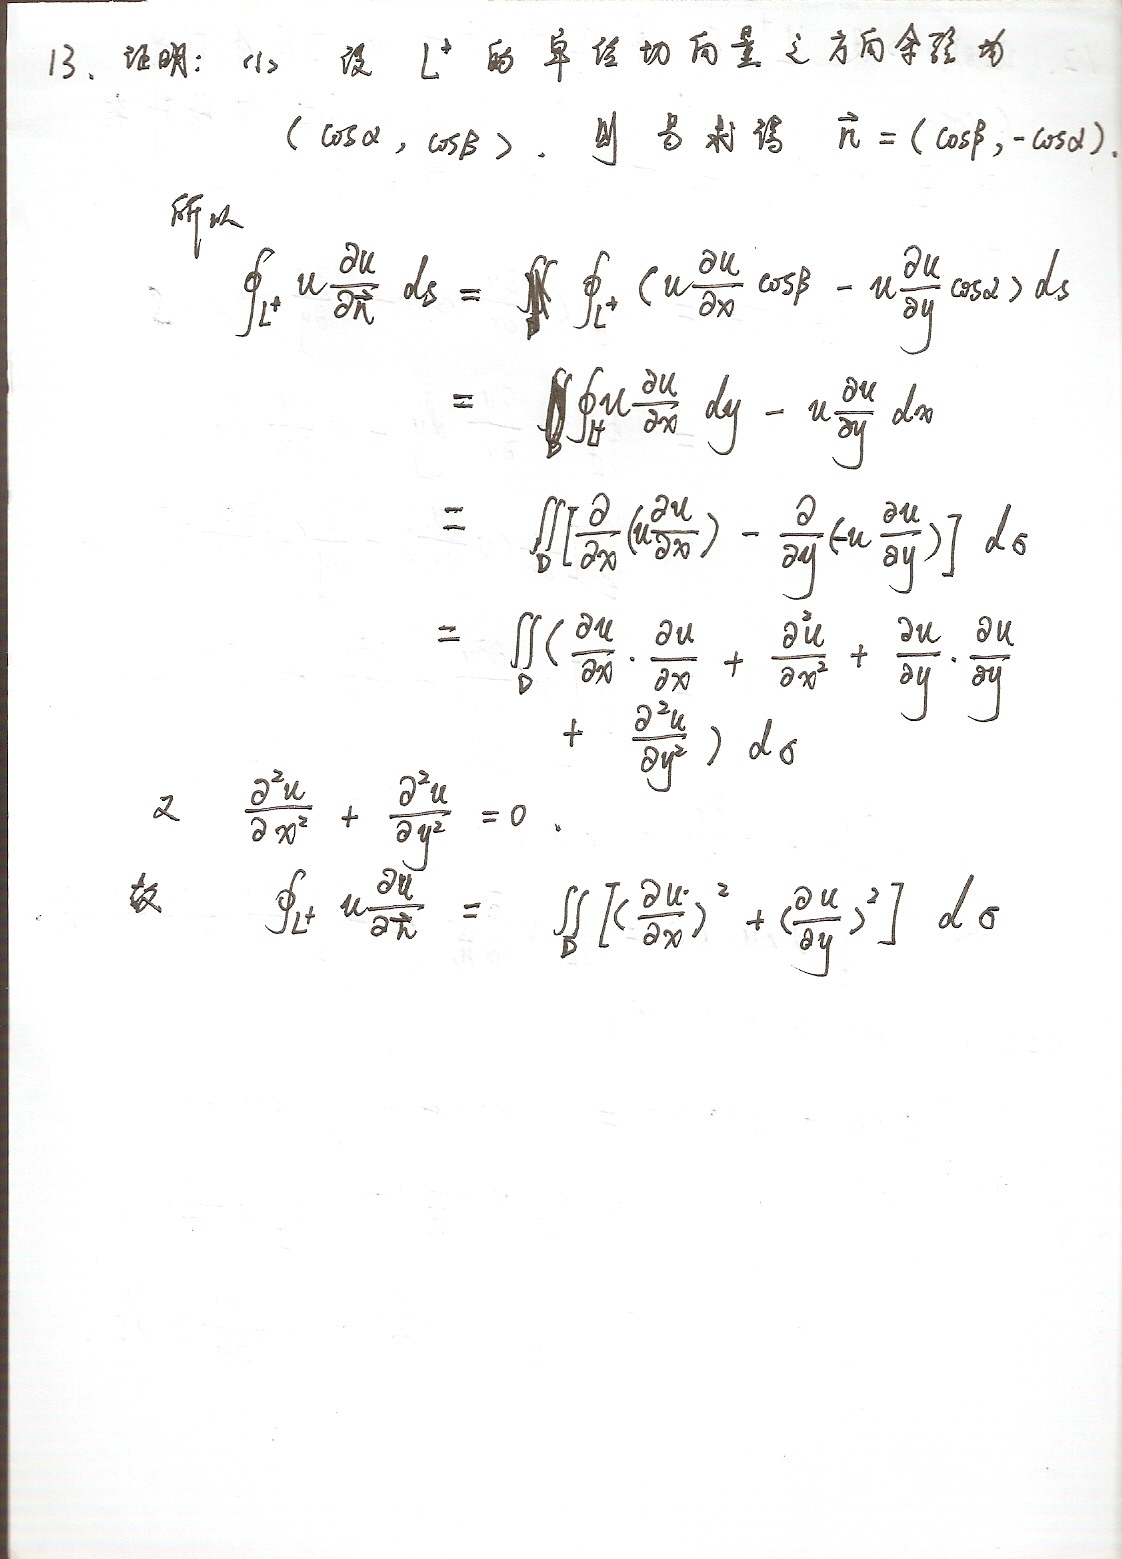 13. 证明: (1) 设 L⁺ 的单位切向量之方向余弦为
(cosα, cosβ). 则易求得 n⃗ = (cosβ, -cosα).
所以
∮_{L⁺} u ∂u/∂n⃗ ds = ∮_{L⁺} (u ∂u/∂x cosβ - u ∂u/∂y cosα) ds
= ∮_{L⁺} u ∂u/∂x dy - u ∂u/∂y dx
= ∬_D [∂/∂x (u ∂u/∂x) - ∂/∂y (-u ∂u/∂y)] dσ
= ∬_D (∂u/∂x · ∂u/∂x + ∂²u/∂x² + ∂u/∂y · ∂u/∂y
+ ∂²u/∂y²) dσ
又 ∂²u/∂x² + ∂²u/∂y² = 0.
故 ∮_{L⁺} u ∂u/∂n⃗ = ∬_D [(∂u/∂x)² + (∂u/∂y)²] dσ